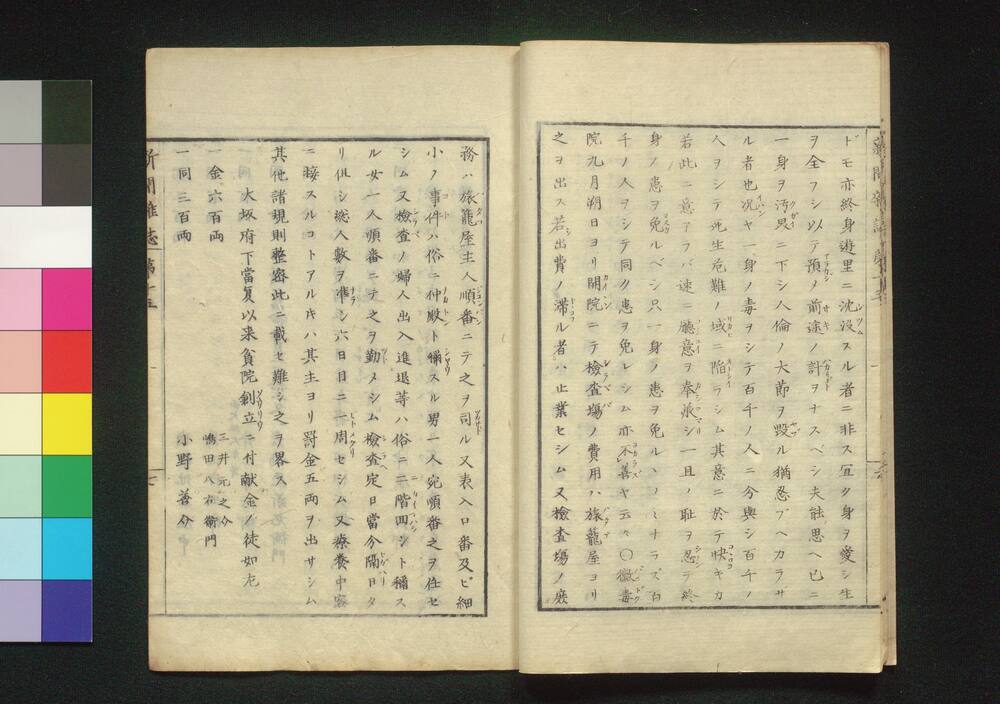 新聞雑誌 第十五
ドモ亦終身遊里ニ沈没スル者ニ非ス冝ク身ヲ愛シ生
ヲ全フシ以テ預メ前途ノ計ヲナスベシ夫能思ヘ已ニ
一身ヲ汚泥ニ下シ人倫ノ大節ヲ毀ル猶忍ブヘカラザ
ル者也况ヤ一身ノ毒ヲシテ百千ノ人ニ分與シ百千ノ
人ヲシテ死生危難ノ域ニ陷ラシム其意ニ於テ快キカ
若此ニ意アラバ速ニ廳意ヲ奉承シ一旦ノ耻ヲ忍テ終
身ノ患ヲ免ルベシ只一身ノ患ヲ免ルヽノミナラズ百
千ノ人ヲシテ同ク患ヲ免レシム亦不善ヤ云々〇黴毒
院九月朔日ヨリ開院ニテ檢査場ノ費用ハ旅籠屋ヨリ
之ヲ出ス若出費ノ滞ル者ハ止業セシム又檢査場ノ廢
務ハ旅籠屋主人順番ニテ之ヲ司ル又表入口番及ビ細
小ノ事件ハ俗ニ仲殿ト稱スル男一人宛順番之ヲ仕セ
シム又檢査ノ婦人出入進退等ハ俗ニ二階回シト稱ス
ル女一人順番ニテ之ヲ勤メシム檢査定日當今隔日タ
リ但シ惣人數ヲ準シ六日目ニ一周セシム又療養中客
ニ接スルコトアルキハ其主ヨリ罰金五両ヲ出サシム
其他諸規則整密此ニ載セ難シ之ヲ畧ス
一大坂府下當夏以来貧院創立ニ付献金ノ徒如左
一金六百両 三井元之介
嶋田八右衛門
一同三百両 小野善介
新聞雜誌 第十五